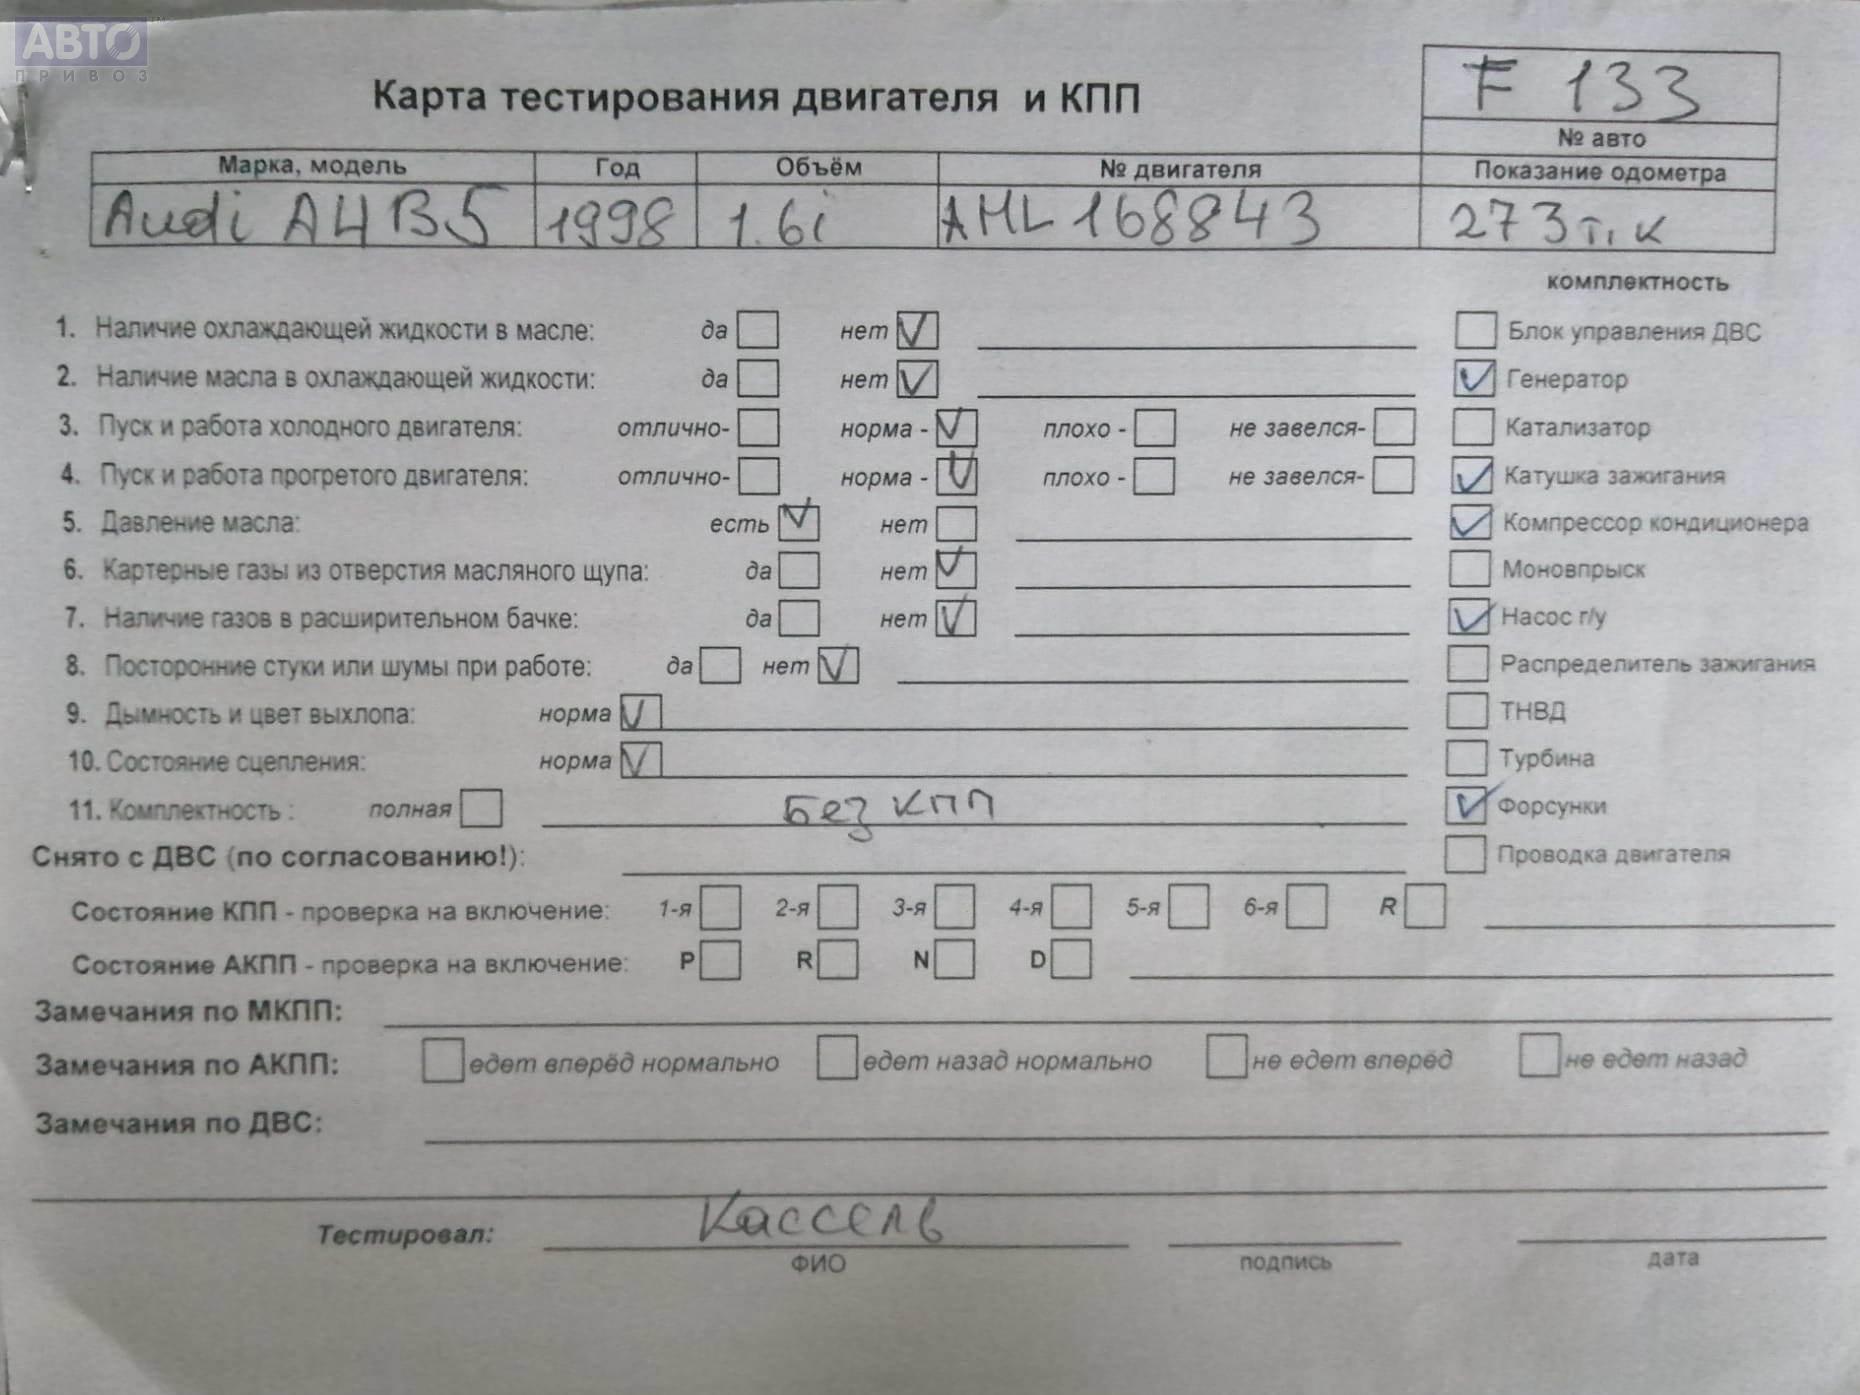 АВТО
ПРИВОЗ
F 133
Карта тестирования двигателя и КПП
№ авто
Марка, модель Год Объём № двигателя Показание одометра
Audi A4 B5 1998 1.6i AHL 168843 273 т. к
комплектность
1. Наличие охлаждающей жидкости в масле: да нет Блок управления ДВС
2. Наличие масла в охлаждающей жидкости: да нет Генератор
3. Пуск и работа холодного двигателя: отлично- норма - плохо - не завелся- Катализатор
4. Пуск и работа прогретого двигателя: отлично- норма - плохо - не завелся- Катушка зажигания
5. Давление масла: есть нет Компрессор кондиционера
6. Картерные газы из отверстия масляного щупа: да нет Моновпрыск
7. Наличие газов в расширительном бачке: да нет Насос г/у
8. Посторонние стуки или шумы при работе: да нет Распределитель зажигания
9. Дымность и цвет выхлопа: норма ТНВД
10. Состояние сцепления: норма Турбина
11. Комплектность : полная Без КПП Форсунки
Снято с ДВС (по согласованию!): Проводка двигателя
Состояние КПП - проверка на включение: 1-я 2-я 3-я 4-я 5-я 6-я R
Состояние АКПП - проверка на включение: P R N D
Замечания по МКПП:
Замечания по АКПП: едет вперёд нормально едет назад нормально не едет вперёд не едет назад
Замечания по ДВС:
Тестировал: Кассель
ФИО подпись дата